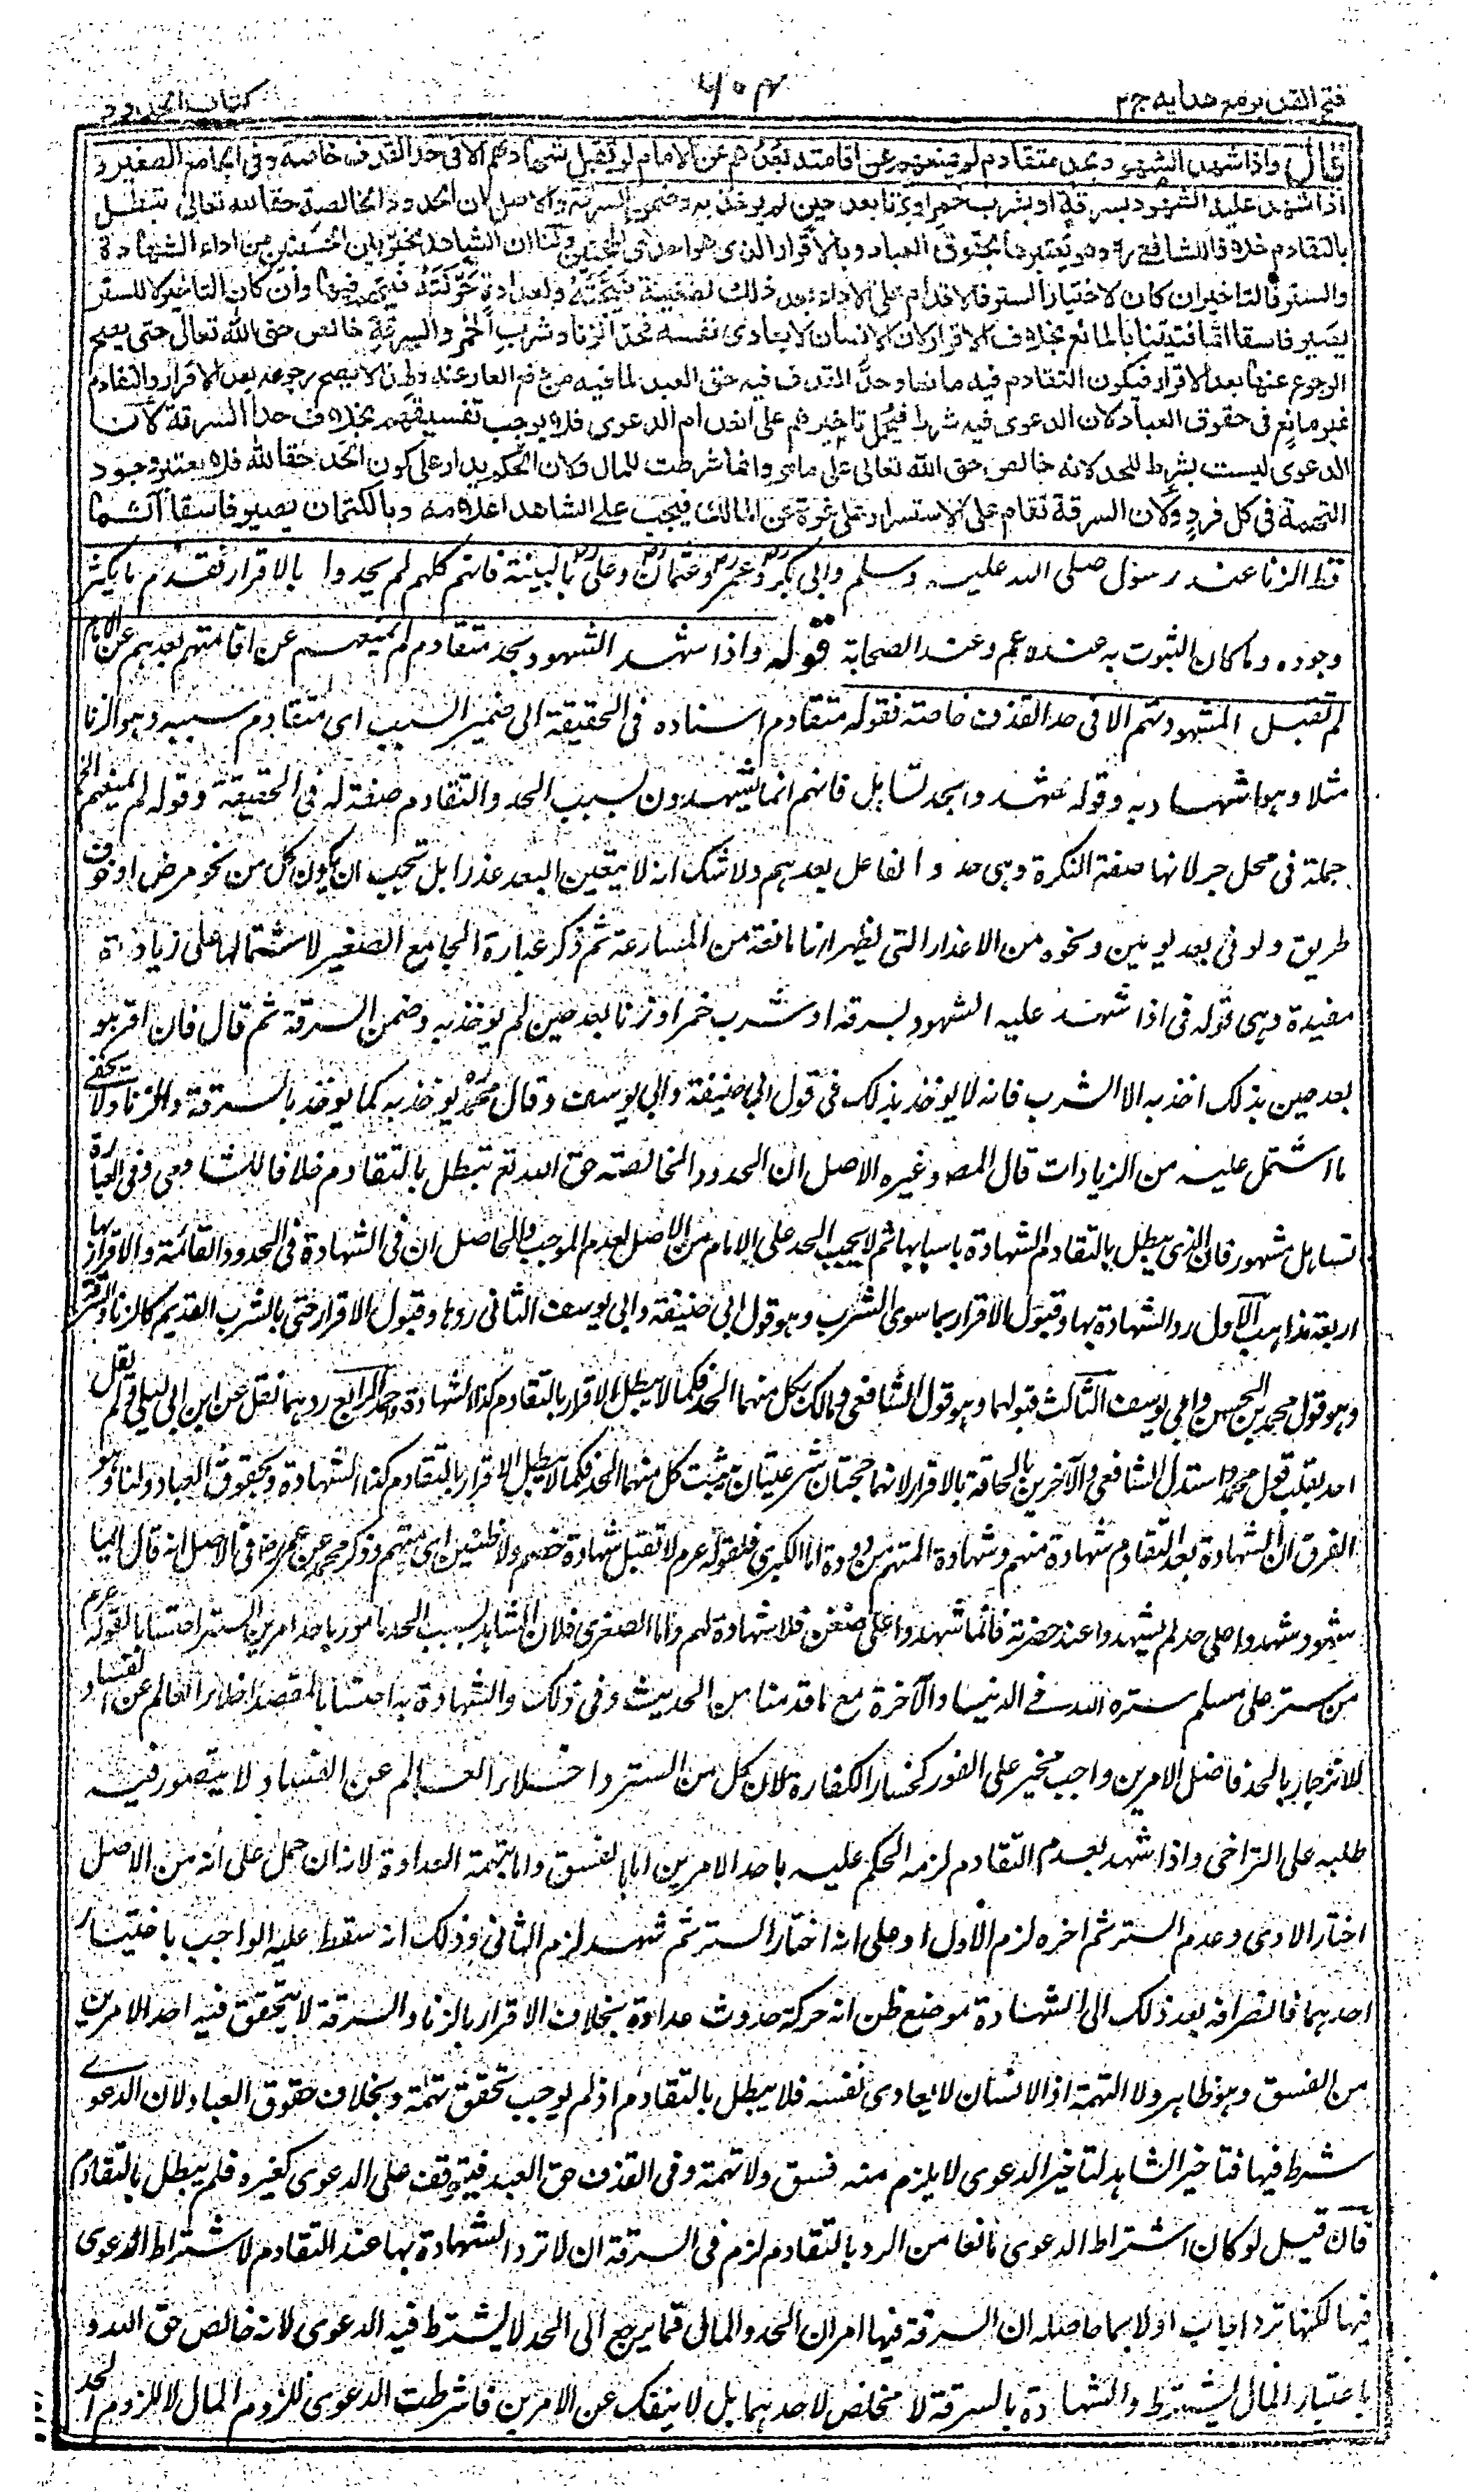 فتح القدير مع هدايه ج ٢
كتاب الحدود
قال واذا شهد الشهود بحد متقادم لم يمنعهم عن اقامته بعدهم عن الامام لم تقبل شهادتهم الا فى حد القذف خاصة وفى الجامع الصغير و
اذا شهد عليه الشهود بسرقة او بشرب خمر او بزنا بعد حين لم يؤخذ به وضمن السرقة والاصل ان الحدود الخالصة حقا لله تعالى تبطل
بالتقادم خلافا للشافعى وهو يعتبرها بحقوق العباد وبالاقرار الذى هو احدى الحجتين ولنا ان الشاهد مخير بين الحسبتين من اداء الشهادة
والستر فالتاخير ان كان لاختيار الستر فالاقدام على الاداء بعد ذلك لضغينة هيجته ولعداوة حركته فيتهم فيها وان كان التاخير لا للستر
يصير فاسقا اثما فتيقنا بالمانع بخلاف الاقرار لان الانسان لا يعادى نفسه فحد الزنا وشرب الخمر والسرقة خالص حق الله تعالى حتى يصح
الرجوع عنها بعد الاقرار فيكون التقادم فيه مانعا وحد القذف فيه حق العبد لما فيه من دفع العار عنه ولهذا لا يصح رجوعه بعد الاقرار والتقادم
غير مانع فى حقوق العباد لان الدعوى فيه شرط فيحمل تاخيرهم على انعدام الدعوى فلا يوجب تفسيقهم بخلاف حد السرقة لان
الدعوى ليست بشرط للحد لانه خالص حق الله تعالى على ما مر وانما شرطت للمال ولان الحكم يدار على كون الحد حقا لله فلا يعتبر وجود
التهمة فى كل فرد ولان السرقة تقام على الاستسرار على غرة عن المالك فيجب على الشاهد اعلامه وبالكتمان يصير فاسقا آثما
قط الزنا عند رسول صلى الله عليه وسلم وابى بكر وعمر وعثمان وعلى بالبينة فانهم كلهم لم يحدوا الا بالاقرار فقدم ما يكثر
وجوده وما كان الثبوت به عنده عم وعند الصحابة قوله واذا شهد الشهود بحد متقادم لم يمنعهم عن اقامتهم بعدهم عن الامام
لم تقبل الشهود تهم الا فى حد القذف خاصة فقوله متقادم اسناده فى الحقيقة الى ضمير السبب اى متقادم سببه وهو الزنا
مثلا وهو اشهاد به وقوله شهدوا بحد تساهل فانهم انما يشهدون بسبب الحد والتقادم صفة له فى الحقيقة وقوله لم يمنعهم الخ
جملة فى محل جر لانها صفة النكرة وهى حد والفاعل بعدهم ولا شك انه لا يتعين البعد عذرا بل تجيب ان يكون كل من نحو مرض او خوف
طريق ولو فى بعد يومين ونحوه من الاعذار التى يظهر انها مانعة من المسارعة ثم ذكر عبارة الجامع الصغير لاشتمالها على زيادة
مفيدة وهى قوله فى اذا شهد عليه الشهود بسرقة او شرب خمر او زنا بعد حين لم يؤخذ به وضمن السرقة ثم قال فان اقر هو
بعد حين بذلك اخذ به الا الشرب فانه لا يؤخذ بذلك فى قول ابى حنيفة وابى يوسف وقال محمد يؤخذ به كما يؤخذ بالسرقة والزنا ولا يخفى
ما اشتمل عليه من الزيادات قال المصـ وغيره الاصل ان الحدود الخالصة حق الله تع تبطل بالتقادم خلافا للشافعى وفى العبارة
تساهل مشهور فان الذى يبطل بالتقادم الشهادة باسبابها ثم لا يجب الحد على الامام من الاصل لعدم الموجب والحاصل ان فى الشهادة فى الحدود القائمة والاقرار بها
اربعة مذاهب الاول رد الشهادة بها وقبول الاقرار بما سوى الشرب وهو قول ابى حنيفة وابى يوسف الثانى ردها وقبول الاقرار حتى بالشرب القديم كالزنا والسرقة
وهو قول محمد بن الحسن وابى يوسف الثالث قبولهما وهو قول الشافعى ومالك بكل منهما الحد فكما لا يبطل الاقرار بالتقادم كذا الشهادة واحمد الرابع ردهما نقل عن ابن ابى ليلى ولم نقل
احد بقلب قول محمد واستدل الشافعى والآخرين بالحاقه بالاقرار لانهما حجتان شرعيتان يثبت كل منهما الحد فكما لا يبطل الاقرار بالتقادم كذا الشهادة وبحقوق العباد ولنا وهو
الفرق ان الشهادة بعد التقادم شهادة متهم وشهادة المتهم مردودة اما الكبرى فلقوله عرم لا تقبل شهادة خصم ولا ظنين اى متهم وذكر محمد عن عمر رض فى الاصل انه قال ايما
شهود شهدوا على حد لم يشهدوا عند حضرته فانما شهدوا على ضغن فلا شهادة لهم واما الصغرى فلان الشاهد بسبب الحد مامور باحد امرين الستر احتسابا لقوله عرم
من ستر على مسلم ستره الله فى الدنيا والآخرة مع ما قدمنا من الحديث وفى ذلك والشهادة به احتسابا لمقصد اخلاء العالم عن الفساد
للانزجار بالحد فاضل الامرين واجب مخير على الفور كخصار الكفارة لان كل من الستر واخلاء العالم عن الفساد لا يتصور فيه
طلبه على التراخى واذا شهد بعدم التقادم لزمه الحكم عليه باحد الامرين اما بالفسق واما بتهمة العداوة لانه ان حمل على انه من الاصل
اختار الادى وعدم الستر ثم اخره لزم الاول او على انه اختار الستر ثم شهد لزم الثانى وذلك انه سقط عليه الواجب باختيار
احدهما فانصرافه بعد ذلك الى الشهادة موضع ظن انه حركة حدوث عداوة بخلاف الاقرار بالزنا والسرقة لا يتحقق فيه احد الامرين
من الفسق وهو ظاهر ولا التهمة اذ الانسان لا يعادى نفسه فلا يبطل بالتقادم اذ لم يوجب تحقق تهمة وبخلاف حقوق العباد لان الدعوى
شرط فيها فتاخير الشاهد لتاخير الدعوى لا يلزم منه فسق ولا تهمة وفى القذف حق العبد فيتوقف على الدعوى كغيره فلم يبطل بالتقادم
فان قيل لو كان اشتراط الدعوى مانعا من الرد بالتقادم لزم فى السرقة ان لا ترد الشهادة بها عند التقادم لاشتراط الدعوى
فيها لكنها ترد اجاب اولا بما حاصله ان السرقة فيها امران الحد والمال فما يرجع الى الحد لا يشترط فيه الدعوى لانه خالص حق الله و
باعتبار المال يشترط والشهادة بالسرقة لا مخلص لاحدهما بل لا ينفك عن الامرين فاشرطت الدعوى للزوم المال لا للزوم الحد